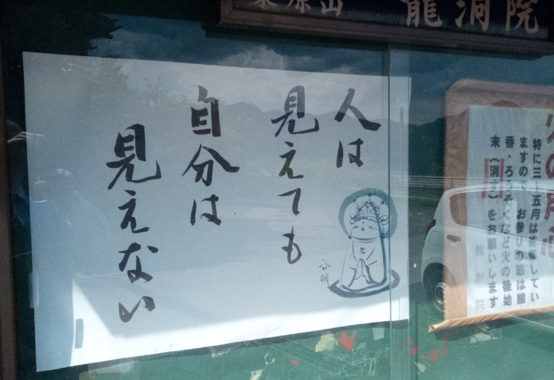 龍洞院
人は
見えても
自分は
見えない
特に三、五月は乾燥してい
ますので、お参りの節は線
香・ろうそくなど火の後始
末(消す)をお願いします